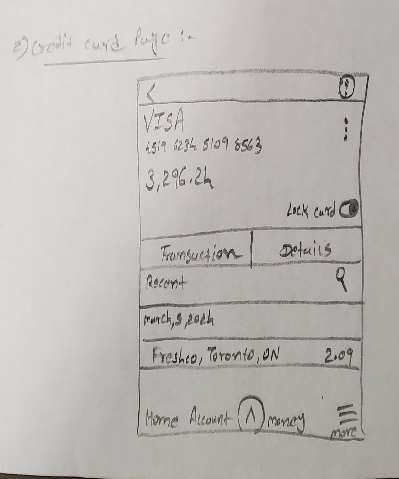 2) Credit card Page :-
VISA
4519 1234 5109 8563
3,296.24
Lock card
Transuction Details
Recent
March, 5, 2024
Freshco, Toronto, ON 2.09
Home Account money more